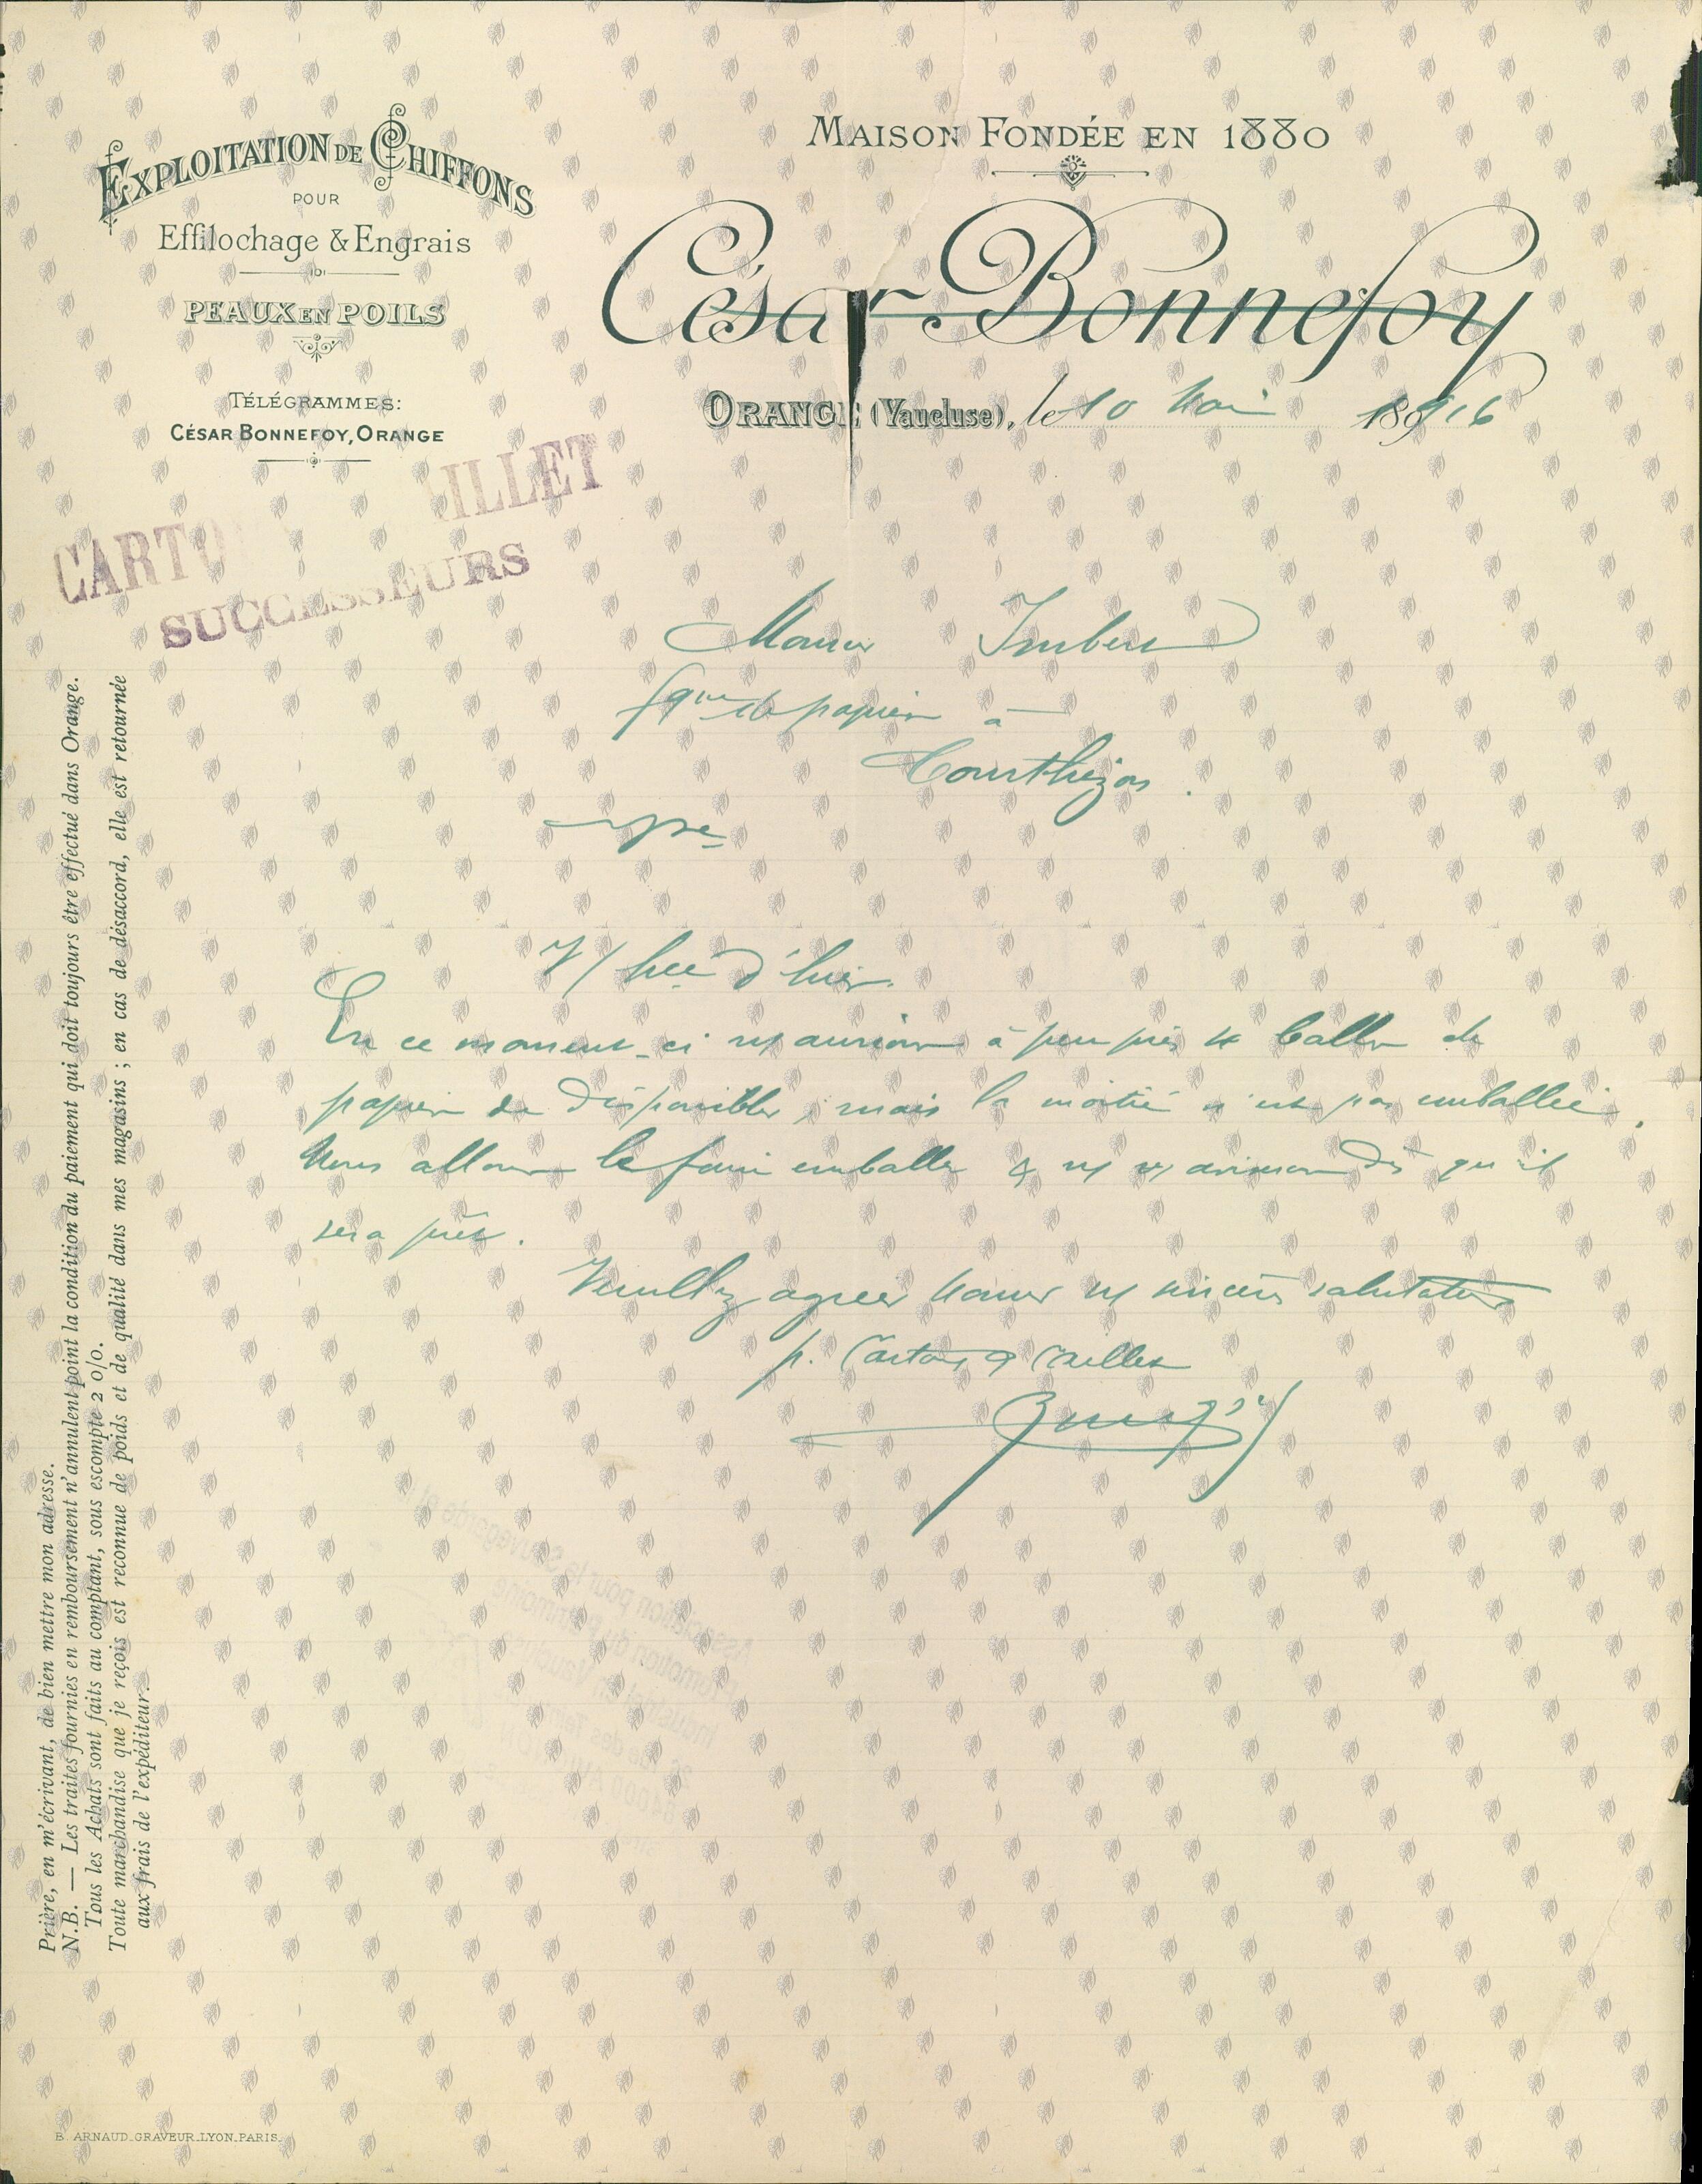 EXPLOITATION DE CHIFFONS
POUR
Effilochage & Engrais
PEAUX EN POILS
TÉLÉGRAMMES:
CÉSAR BONNEFOY, ORANGE
MAISON FONDÉE EN 1880
César Bonnefoy
ORANGE (Vaucluse), le 10 Mai 1916
CARTO ILLET
SUCCESSEURS
Imbert
de papier à
Courthézon.
d'hier.
En ce moment-ci aurions à peu près balles de
papier de disponibles, mais la moitié n'est pas emballée.
Nous allons le faire emballer & dès qu'il
sera prêt.
Veuillez agréer sincères salutations
p. Cartoux & Caillet
Prière, en m'écrivant, de bien mettre mon adresse.
N.B. — Les traites fournies en remboursement n'annulent point la condition du paiement qui doit toujours être effectué dans Orange.
Tous les Achats sont faits au comptant, sous escompte 2 0/0.
Toute marchandise que je reçois est reconnue de poids et de qualité dans mes magasins ; en cas de désaccord, elle est retournée
aux frais de l'expéditeur.
B. ARNAUD_GRAVEUR_LYON_PARIS.